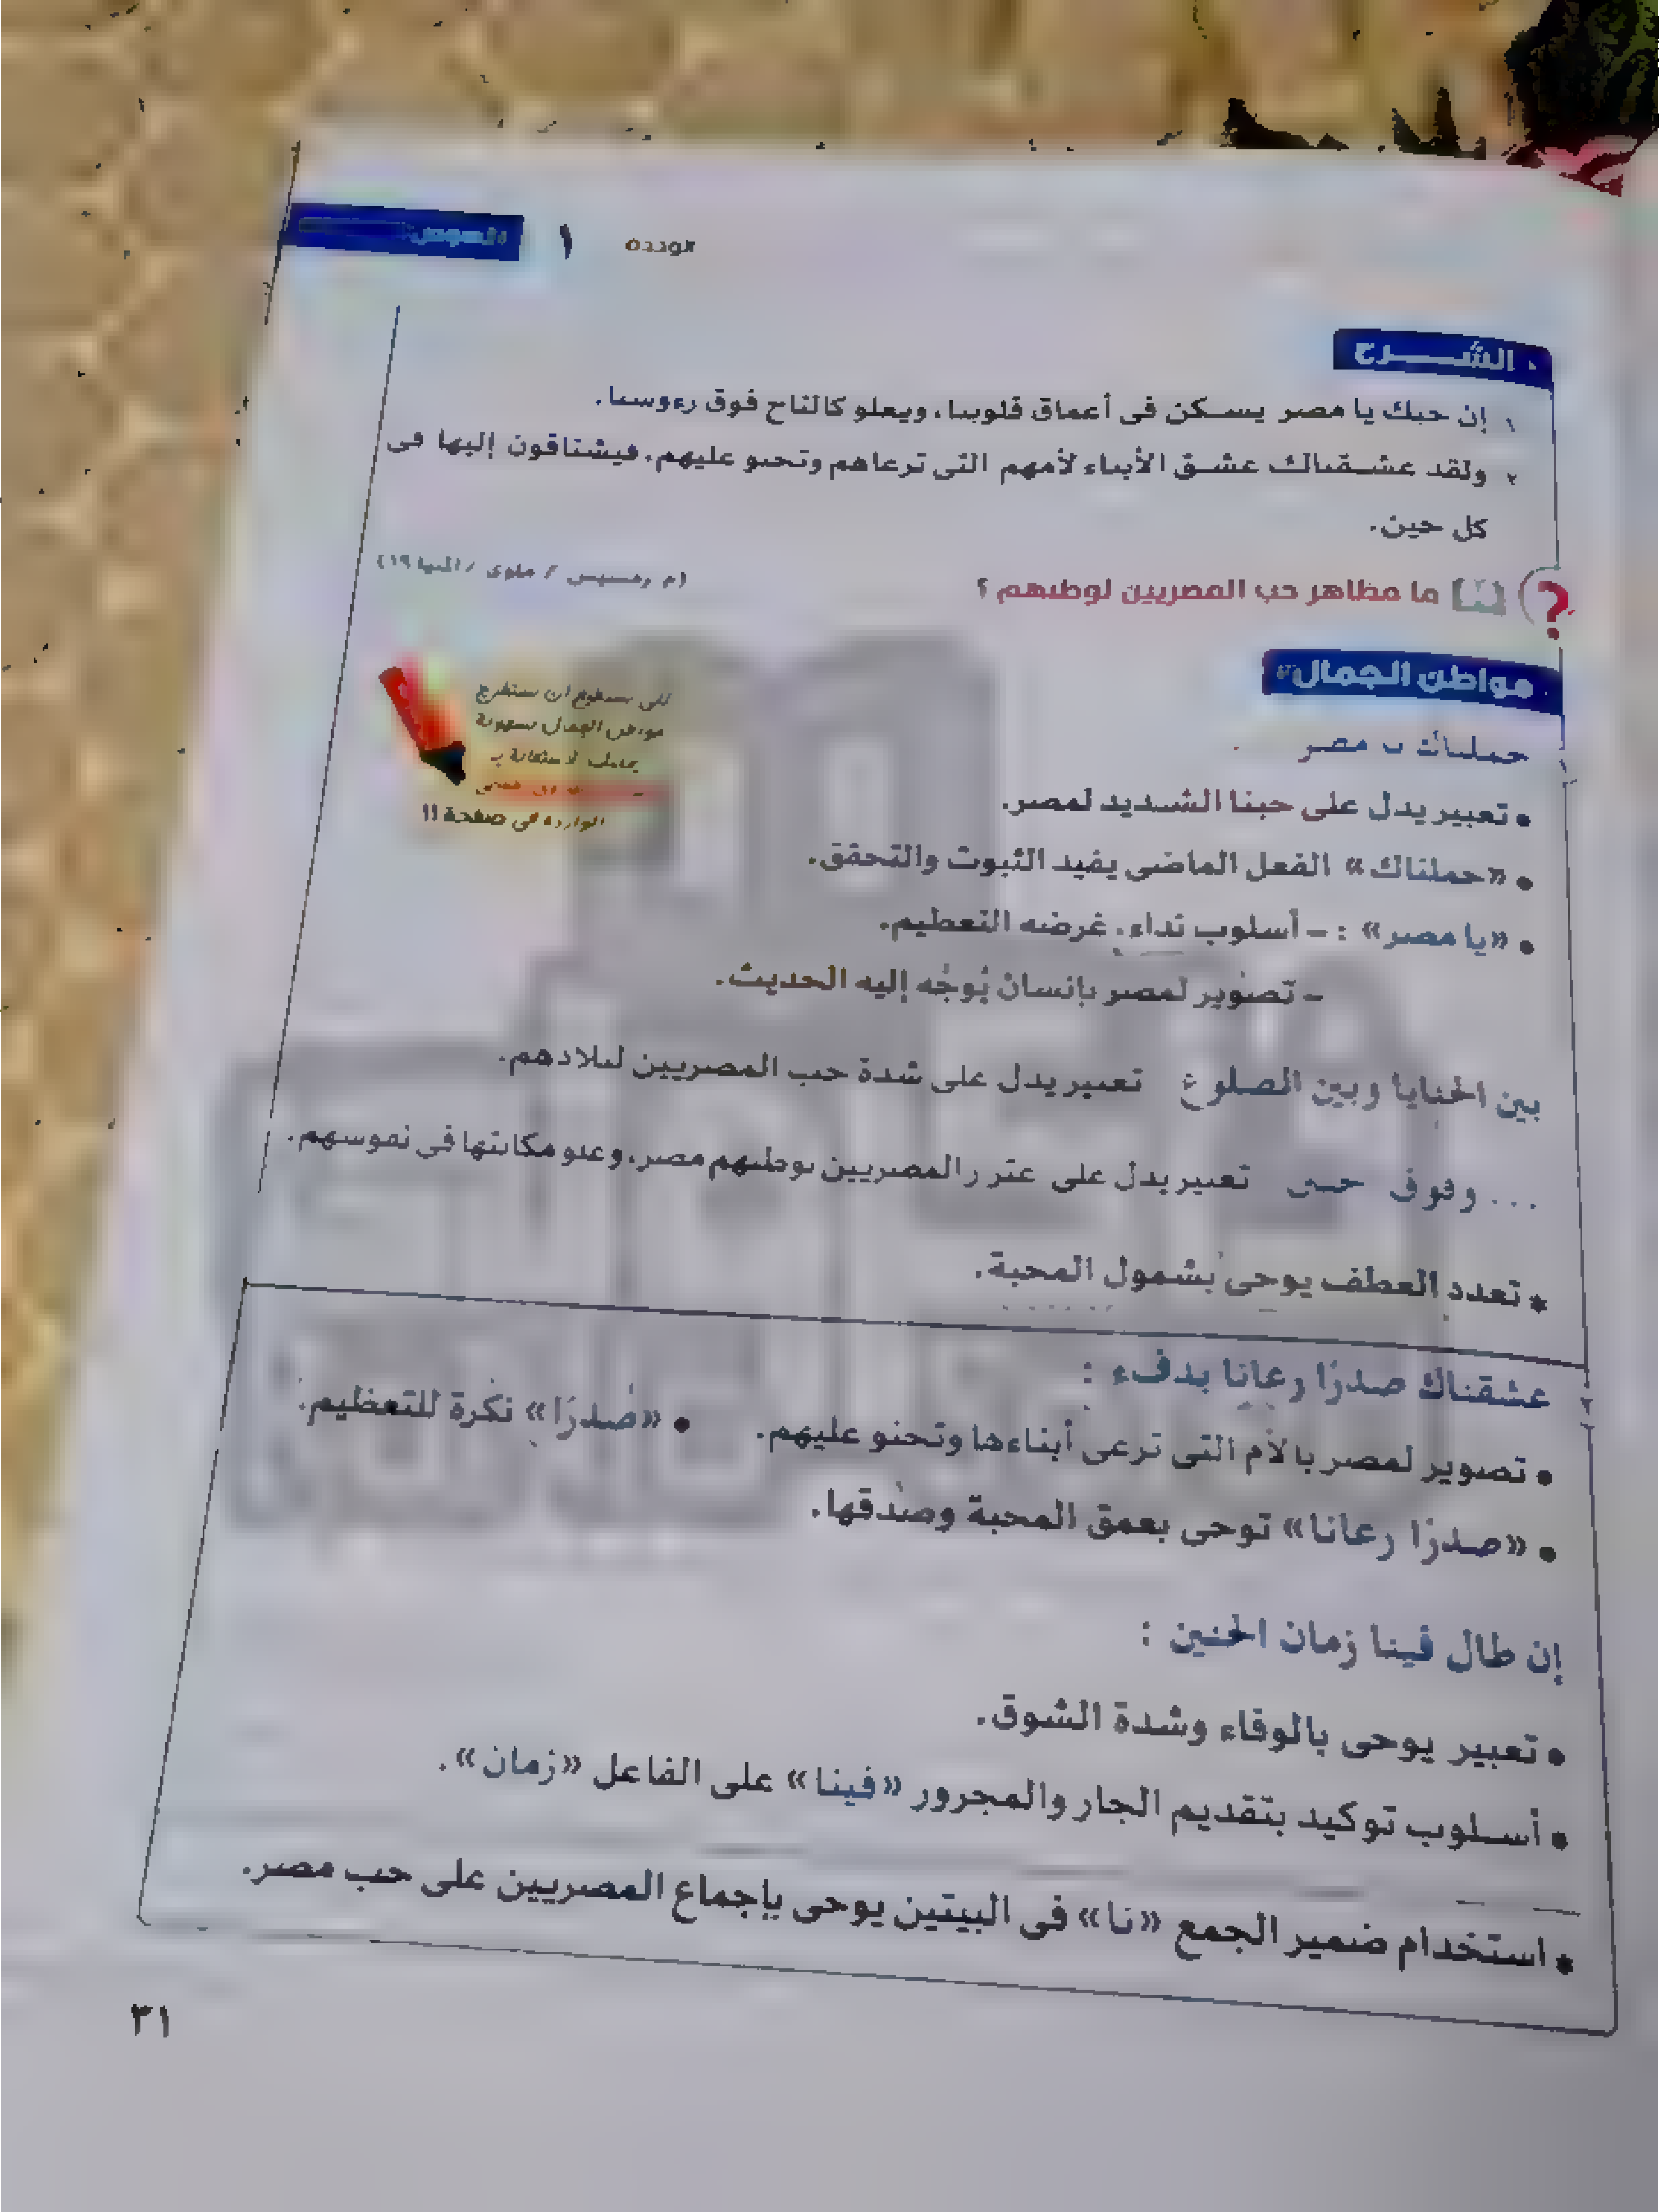 الوحدة ١
الشـــرح
١ إن حبك يا مصر يسكن فى أعماق قلوبنا، ويعلو كالتاج فوق رءوسنا.
٢ ولقد عشقناك عشق الأبناء لأمهم التى ترعاهم وتحنو عليهم، فيشتاقون إليها فى
كل حين.
ما مظاهر حب المصريين لوطنهم ؟
(م رمسيس / ملوى / المنيا ١٩)
مواطن الجمال
لكى تستطيع أن تستخرج
مواطن الجمال بسهولة
الواردة فى صفحة ١١
١ حملناك يا مصر
• تعبير يدل على حبنا الشديد لمصر.
• «حملناك» الفعل الماضى يفيد الثبوت والتحقق.
• «يا مصر» : - أسلوب نداء، غرضه التعظيم.
- تصوير لمصر بإنسان يُوجَّه إليه الحديث.
بين الحنايا وبين الضلوع تعبير يدل على شدة حب المصريين لبلادهم.
... وفوق تعبير يدل على المصريين بوطنهم مصر، وعلو مكانتها فى نفوسهم.
* تعدد العطف يوحى بشمول المحبة.
٢ عشقناك صدرًا رعانا بدفء :
• تصوير لمصر بالأم التى ترعى أبناءها وتحنو عليهم. • «صدرًا» نكرة للتعظيم.
• «صدرًا رعانا» توحى بعمق المحبة وصدقها.
إن طال فينا زمان الحنين :
• تعبير يوحى بالوفاء وشدة الشوق.
* أسلوب توكيد بتقديم الجار والمجرور «فينا» على الفاعل «زمان».
* استخدام ضمير الجمع «نا» فى البيتين يوحى بإجماع المصريين على حب مصر.
٣١